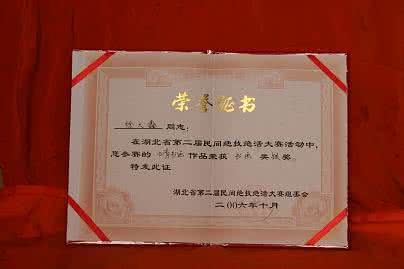 荣誉证书
同志:
在湖北省第二届民间绝技绝活大赛活动中,
您参赛的 作品荣获 奖。
特发此证
湖北省第二届民间绝技绝活大赛组委会
二00六年十月